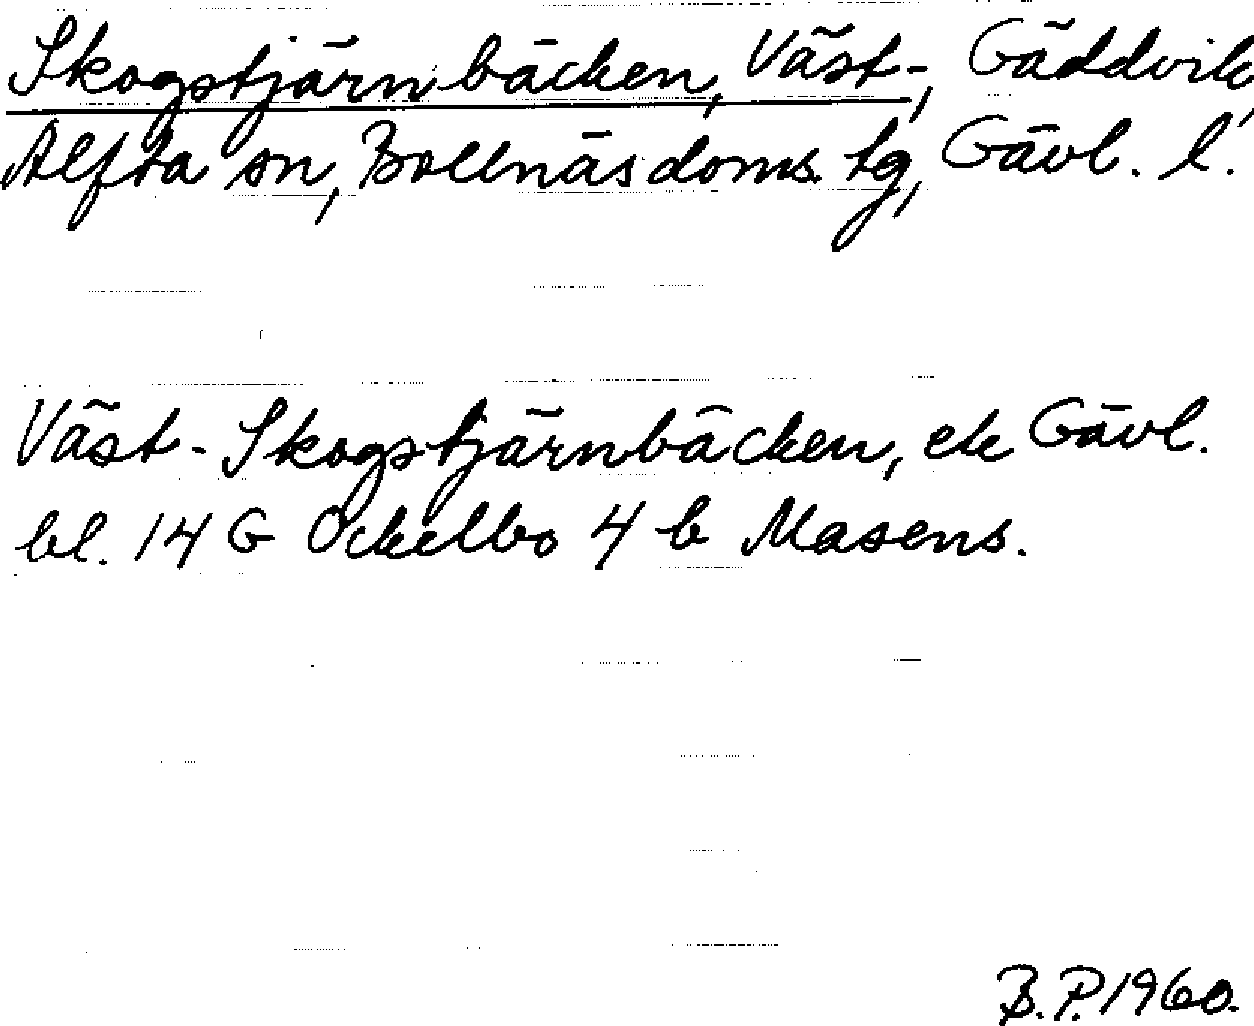 Skogstjärnbäcken, Väst-, Gäddvik,
Alfta sn, Bollnäs doms. tg, Gävl. l.
Väst-Skogstjärnbäcken, ek Gävl.
bl. 14 G Ockelbo 4 b Masens.
B.P. 1960.